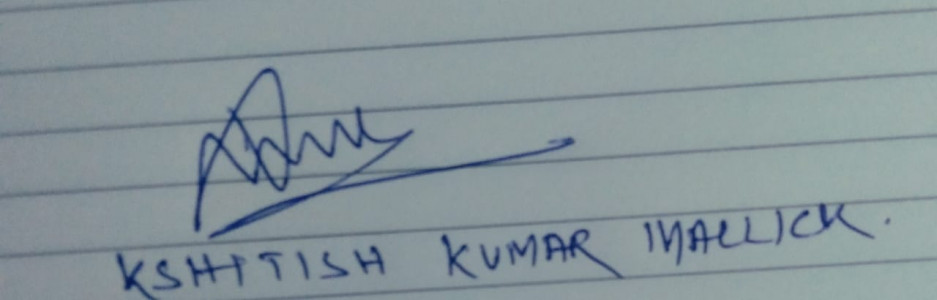 KSHITISH KUMAR MALLICK.